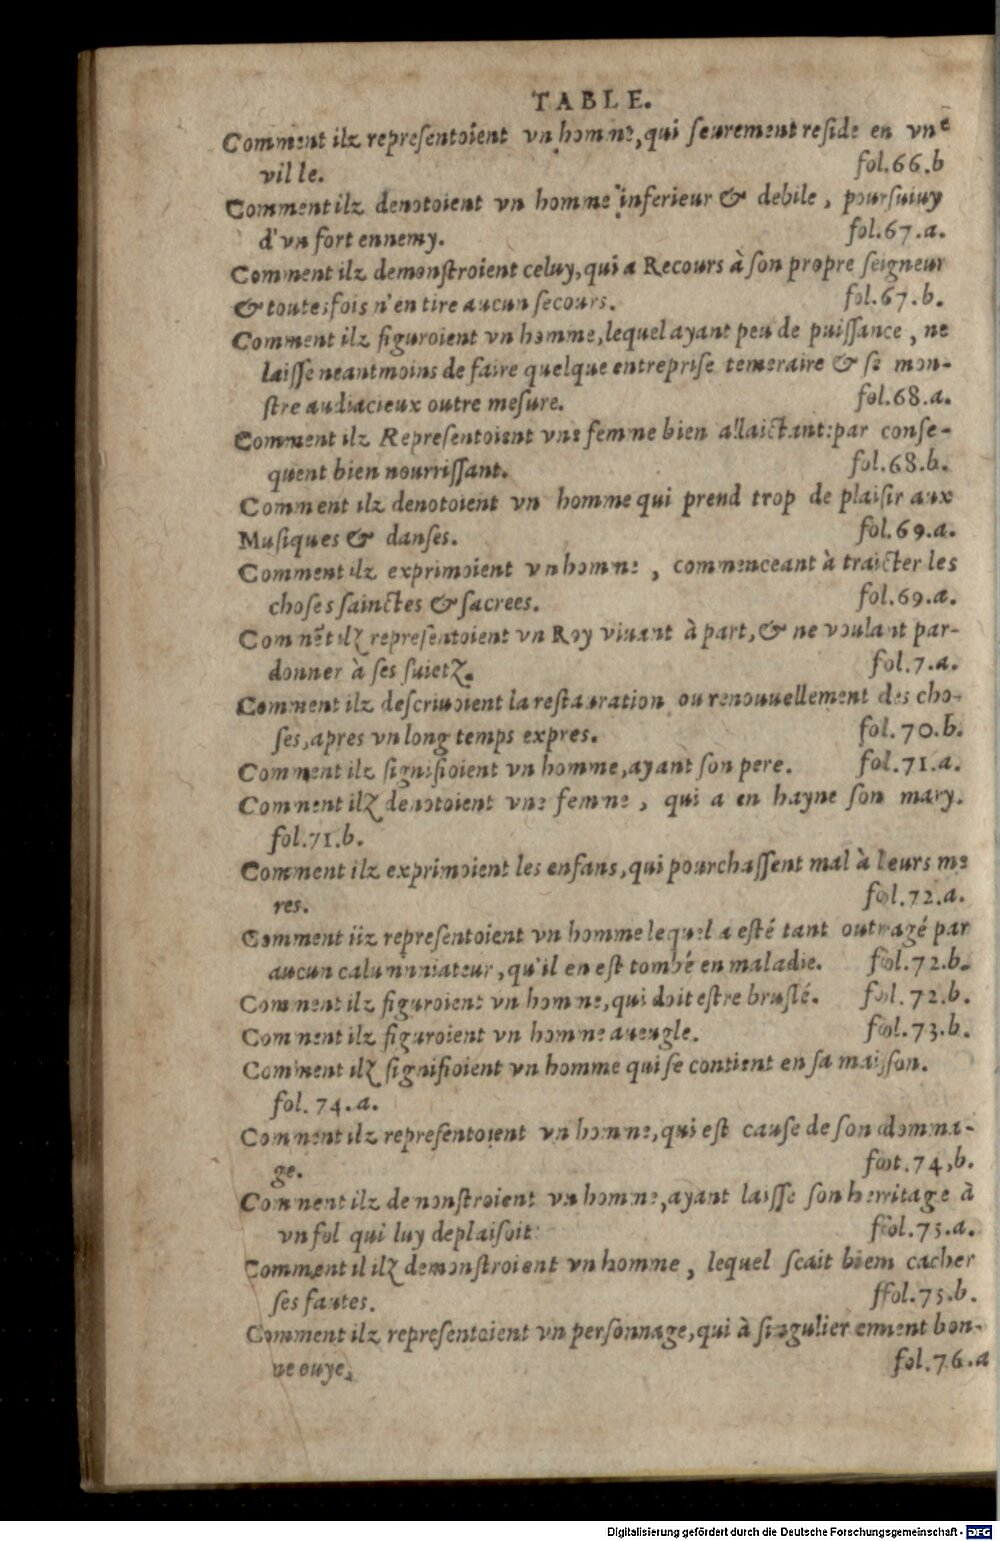 TABLE.
Comment ilz representoient vn homme, qui seurement reside en vne
ville. fol.66.b
Comment ilz denotoient vn homme inferieur & debile, poursuiuy
d'vn fort ennemy. fol.67.a.
Comment ilz demonstroient celuy, qui a Recours à son propre seigneur
& toutesfois n'en tire aucun secours. fol.67.b.
Comment ilz figuroient vn homme, lequel ayant peu de puissance, ne
laisse neantmoins de faire quelque entreprise temeraire & se mon-
stre audacieux outre mesure. fol.68.a.
Comment ilz Representoient vne femme bien allaictant: par conse-
quent bien nourrissant. fol.68.b.
Comment ilz denotoient vn homme qui prend trop de plaisir aux
Musiques & danses. fol.69.a.
Comment ilz exprimoient vn homme, commenceant à traicter les
choses sainctes & sacrees. fol.69.a.
Commẽt ilz representoient vn Roy viuant à part, & ne voulant par-
donner à ses suietz. fol.7.a.
Comment ilz descriuoient la restauration ou renouuellement des cho-
ses, apres vn long temps expres. fol.70.b.
Comment ilz signifioient vn homme, ayant son pere. fol.71.a.
Comment ilz denotoient vne femme, qui a en hayne son mary.
fol.71.b.
Comment ilz exprimoient les enfans, qui pourchassent mal à leurs me
res. fol.72.a.
Comment iiz representoient vn homme lequel a esté tant outragé par
aucun calumniateur, qu'il en est tombé en maladie. fol.72.b.
Comment ilz figuroient vn homme, qui doit estre bruslé. fol.72.b.
Comment ilz figuroient vn homme aueugle. fol.73.b.
Comment ilz signifioient vn homme qui se contient en sa maisson.
fol.74.a.
Comment ilz representoient vn homme, qui est cause de son domma-
ge. fot.74,b.
Comment ilz demonstroient vn homme, ayant laisse son herritage à
vn fol qui luy deplaisoit fol.75.a.
Comment il ilz demonstroient vn homme, lequel scait biem cacher
ses fautes. ffol.75.b.
Comment ilz representoient vn personnage, qui à singulier ement bon-
ne ouye. fol.76.a
Digitalisierung gefördert durch die Deutsche Forschungsgemeinschaft - DFG